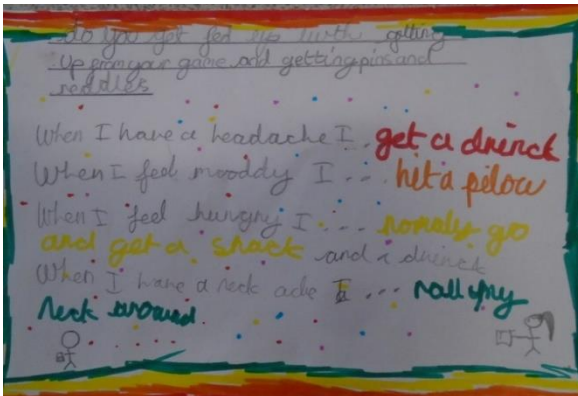 Do you get fed up with getting
up from your game and getting pins and
needles
When I have a headache I. get a drinck
When I feel mooddy I ... hit a pilow
When I feel hungry I .... nomaly go
and get a snack and a drinck
When I have a neck ache I ... roll my
neck around